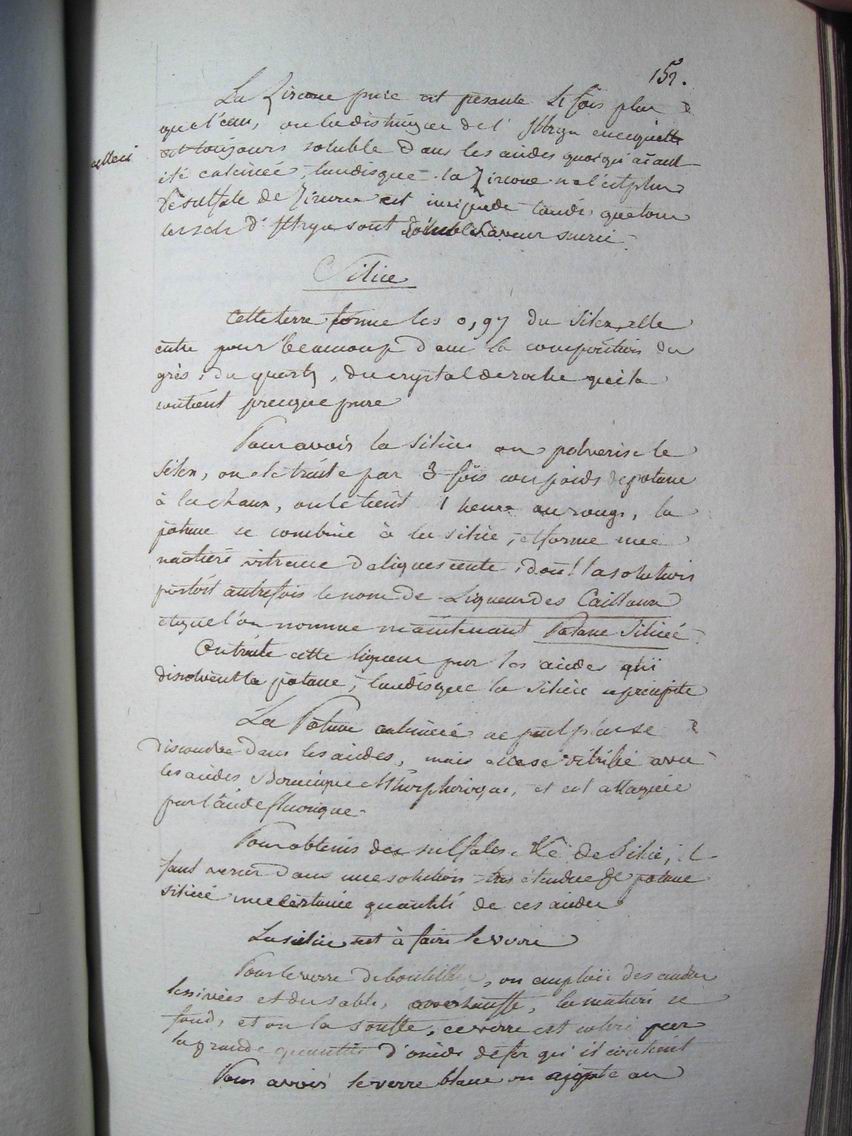 151.
La Zircone pure est pesante 4 fois plus
que l'eau, on la distingue de l'yttrya en ce que celle ci
est toujours soluble dans les acides quoiqu'aiant
été calcinée, tandisque la Zircone ne l'est plus
Le sulfate de Zircone est insipide tandis que tous
les sels d'yttrya sont saveur sucrée.
Silice
Cette terre forme les 0,97 du Silex, elle
entre pour beaucoup dans la composition du
grès, du quartz, du crystal de roche qui la
contient presque pure
Pour avoir la silice on pulverise le
Silex, on le traite par 3 fois son poids de potasse
à la chaux, on le tient 1 heure au rouge, la
potasse se combine à la silice, et forme une
matière vitreuse deliquescente, dont la solution
portoit autrefois le nom de Liqueur des Cailloux
et que l'on nomme maintenant Potasse Silicée.
On traite cette liqueur par les acides qui
dissolvent la potasse, tandisque la silice se précipite
La calcinée ne peut plus se
dissoudre dans les acides, mais elle se vitrifie avec
les acides Boracique et Phosphorique, et est attaquée
par l'acide fluorique.
Pour obtenir des sulfates &c de Silice, il
faut verser dans une solution très étendue de potasse
silicée une certaine quantité de ces acides
La silice sert à faire le verre
Pour le verre de bouteilles, on emploie des cendres
lessivées et du sable, on chauffe, la matière se
fond, et on la souffle, ce verre est coloré par
la grande quantité d'oxide de fer qu'il contient
Pour avoir le verre blanc on ajoute au